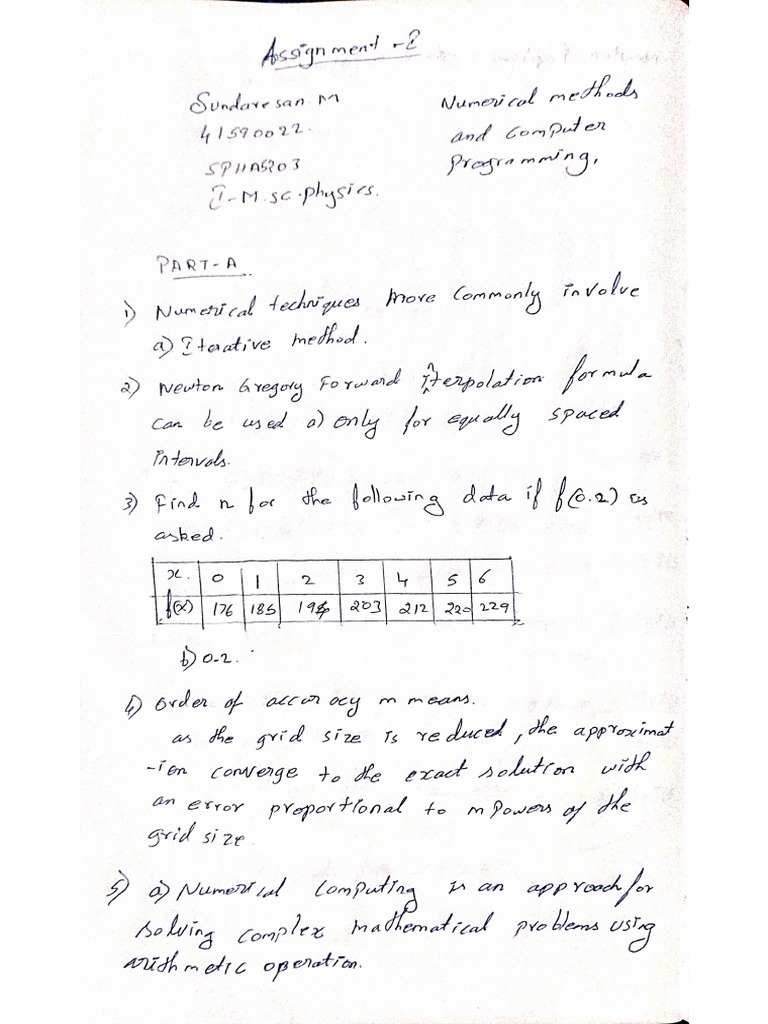 Assignment - 2
Sundaresan. M
Numerical methods
41590022.
and Computer
SPHA5203
Programming,
I - M. sc. physics.
PART-A
1) Numerical techniques more commonly involve
a) Iterative method.
2) Newton Gregory Forward interpolation formula
can be used a) only for equally spaced
intervals.
3) Find n for the following data if f(0.2) is
asked.
x. 0 1 2 3 4 5 6
f(x) 176 185 194 203 212 220 229
b) 0.2.
4) order of accuracy m means.
as the grid size is reduced, the approximat
-ion converge to the exact solution with
an error proportional to m powers of the
grid size.
5) a) Numerical Computing is an approach for
solving complex mathematical problems using
arithmetic operation.